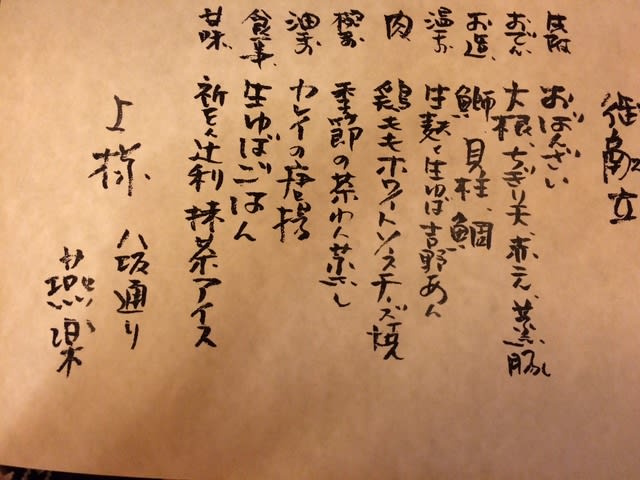 御献立
先附 おばんざい
おでん 大根、ちぎり天、赤こん、蒸し豚
お造 鰤 貝柱 鯛
温物 生麩と生ゆば吉野あん
肉 鶏ももホワイトソースチーズ焼
椀物 季節の茶わん蒸し
油物 カレイの唐揚
食事 生ゆばごはん
甘味 祈をん辻利 抹茶アイス
上様
八坂通り
燕楽